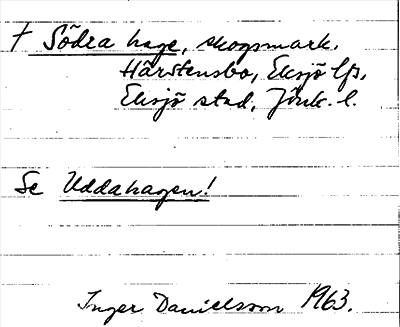 † Södra hage, skogsmark.
Hårstensbo, Eksjö lfs.
Eksjö stad, Jönk. l.
Se Uddahagen!
Inger Danielsson 1963.